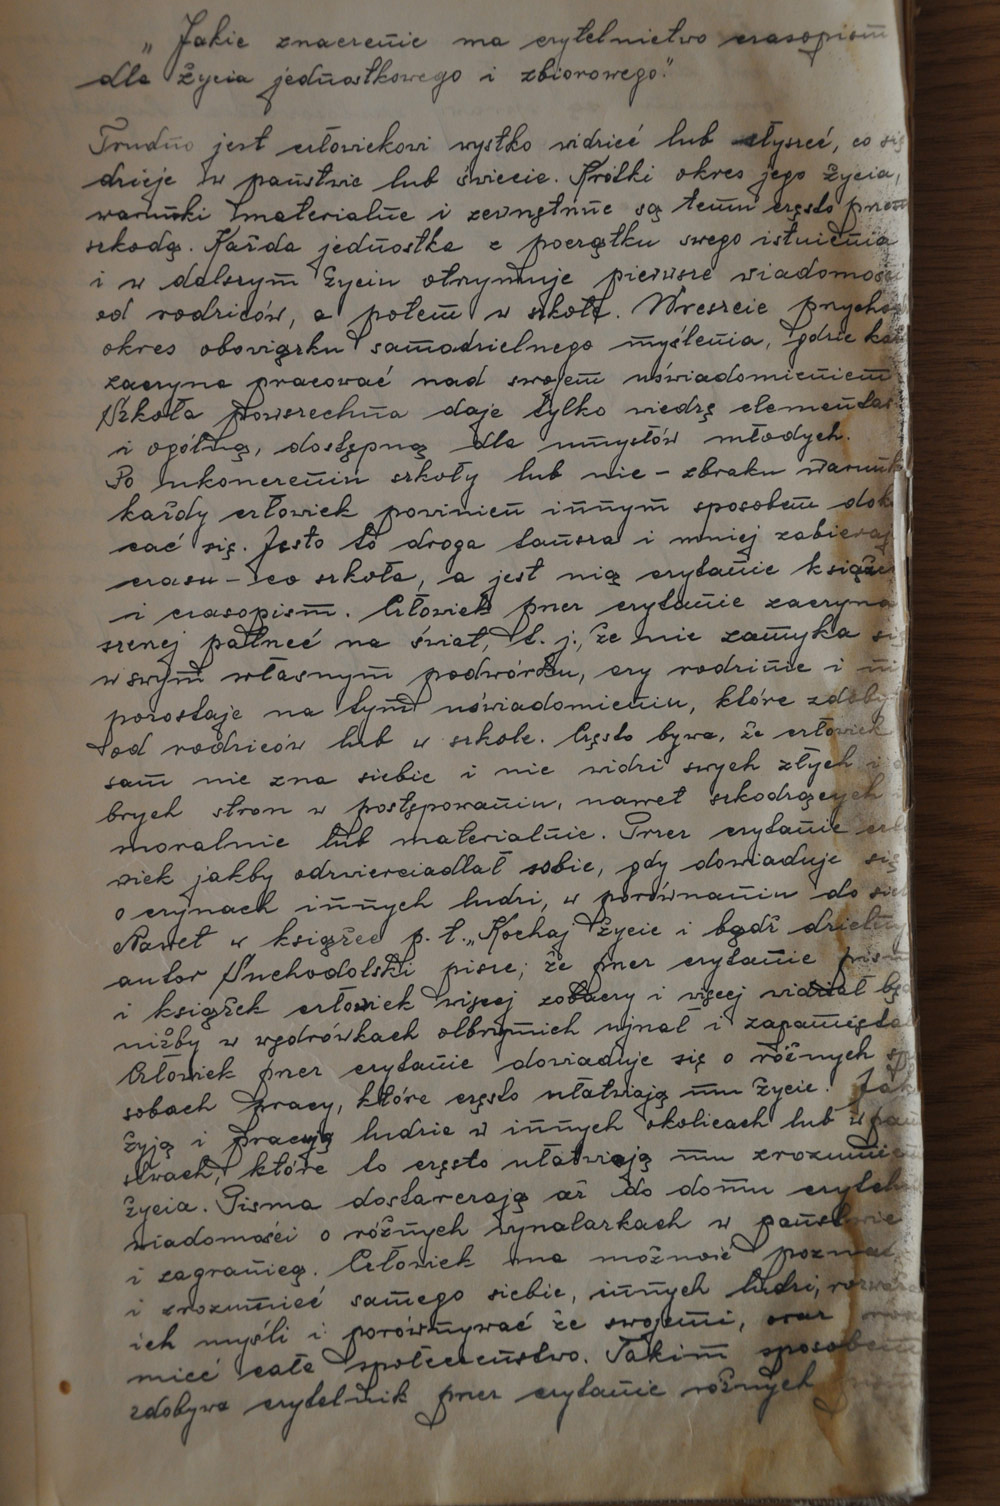 „Jakie znaczenie ma czytelnictwo czasopism
dla życia jednostkowego i zbiorowego."
Trudno jest człowiekowi wystko widzieć lub słyszeć, co się
dzieje w państwie lub świecie. Krótki okres jego życia,
warunki materialne i zewnętrzne są temu często
szkodą. Każda jednostka z początku swego istnienia
i w dalszym życiu otrzymuje pierwsze wiadomości
od rodziców, a potem w szkole. Wreszcie przycho
okres obowiązku samodzielnego myślenia, gdzie każ
zaczyna pracować nad swojem uświadomieniem
Szkoła powszechna daje tylko wiedzę elementar
i ogólną, dostępną dla umysłów młodych.
Po ukończeniu szkoły lub nie – zbraku warunk
każdy człowiek powinien innym sposobem dok
cać się. Jesto to droga tańsza i mniej zabieraj
czasu – co szkoła, a jest nią czytanie książek
i czasopism. Człowiek przez czytanie zaczyna
szerzej patrzeć na świat, t. j., że nie zamyka się
w swym własnym podwórku, czy rodzinie i ni
pozostaje na tym uświadomieniu, które zdoby
od rodziców lub w szkole. Często bywa, że człowiek
sam nie zna siebie i nie widzi swych złych i
brych stron w postępowaniu, nawet szkodzących
moralnie lub materialnie. Przez czytanie czło
wiek jakby odzwierciadlał sobie, gdy dowiaduje się
o czynach innych ludzi, w porównaniu do sieb
Nawet w książce p. t. „Kochaj życie i bądź dzielny
autor Suchodolski pisze; że przez czytanie pism
i książek człowiek więcej zobaczy i więcej widział
niżby w wędrówkach olbrzymich ujrzał i zapamiętał
Człowiek przez czytanie dowiaduje się o różnych sp
sobach pracy, które często ułatwiają mu życie. Jak
żyją i pracują ludzie w innych okolicach lub w pań
stwach, które to często ułatwiają mu zrozumie
życia. Pisma dostarczają aż do domu czyteln
wiadomości o różnych wynalazkach w państwie
i zagranicą. Człowiek ma możność poznać
i zrozumieć samego siebie, innych ludzi,
ich myśli i porównywać że swojemi, oraz
mieć całe społeczeństwo. Takim sposobem
zdobywa czytelnik przez czytanie różnych